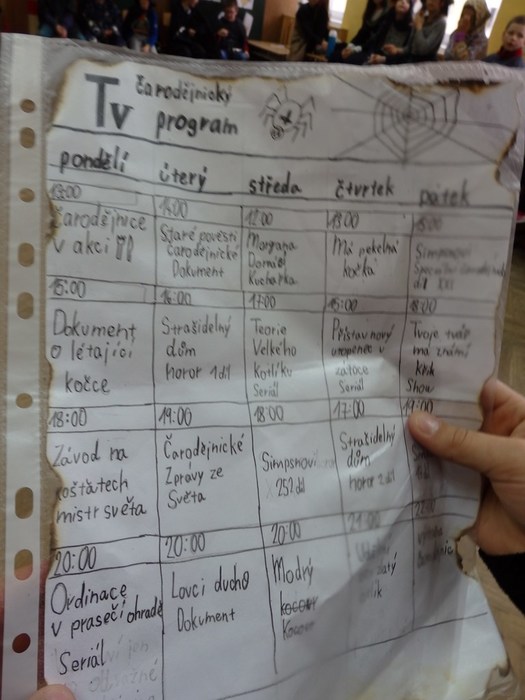 Tv čarodějnický
program
pondělí úterý středa čtvrtek pátek
13:00 14:00 12:00 13:00
Čarodějnice
v akci
Staré pověsti
čarodějnické
Dokument
Morgana
Domácí
Kuchařka
Má pekelná
kočka
Simpsonovi
15:00 16:00 17:00 15:00 18:00
Dokument
o létající
kočce
Strašidelný
dům
horor 1díl
Teorie
Velkého
Kotlíku
Seriál
Přístav nový
utopenec v
zátoce
Seriál
Tvoje tvář
má známí
Show
18:00 19:00 18:00 17:00 19:00
Závod na
košťatech
mistr světa
Čarodějnické
Zprávy ze
Světa
Simpsnovi
252díl
Strašidelný
dům
horor 2díl
20:00 20:00 20:00 21:00 22:00
Ordinace
v prasečí ohradě
Seriál
Lovci ducho
Dokument
Modrý
Kocour